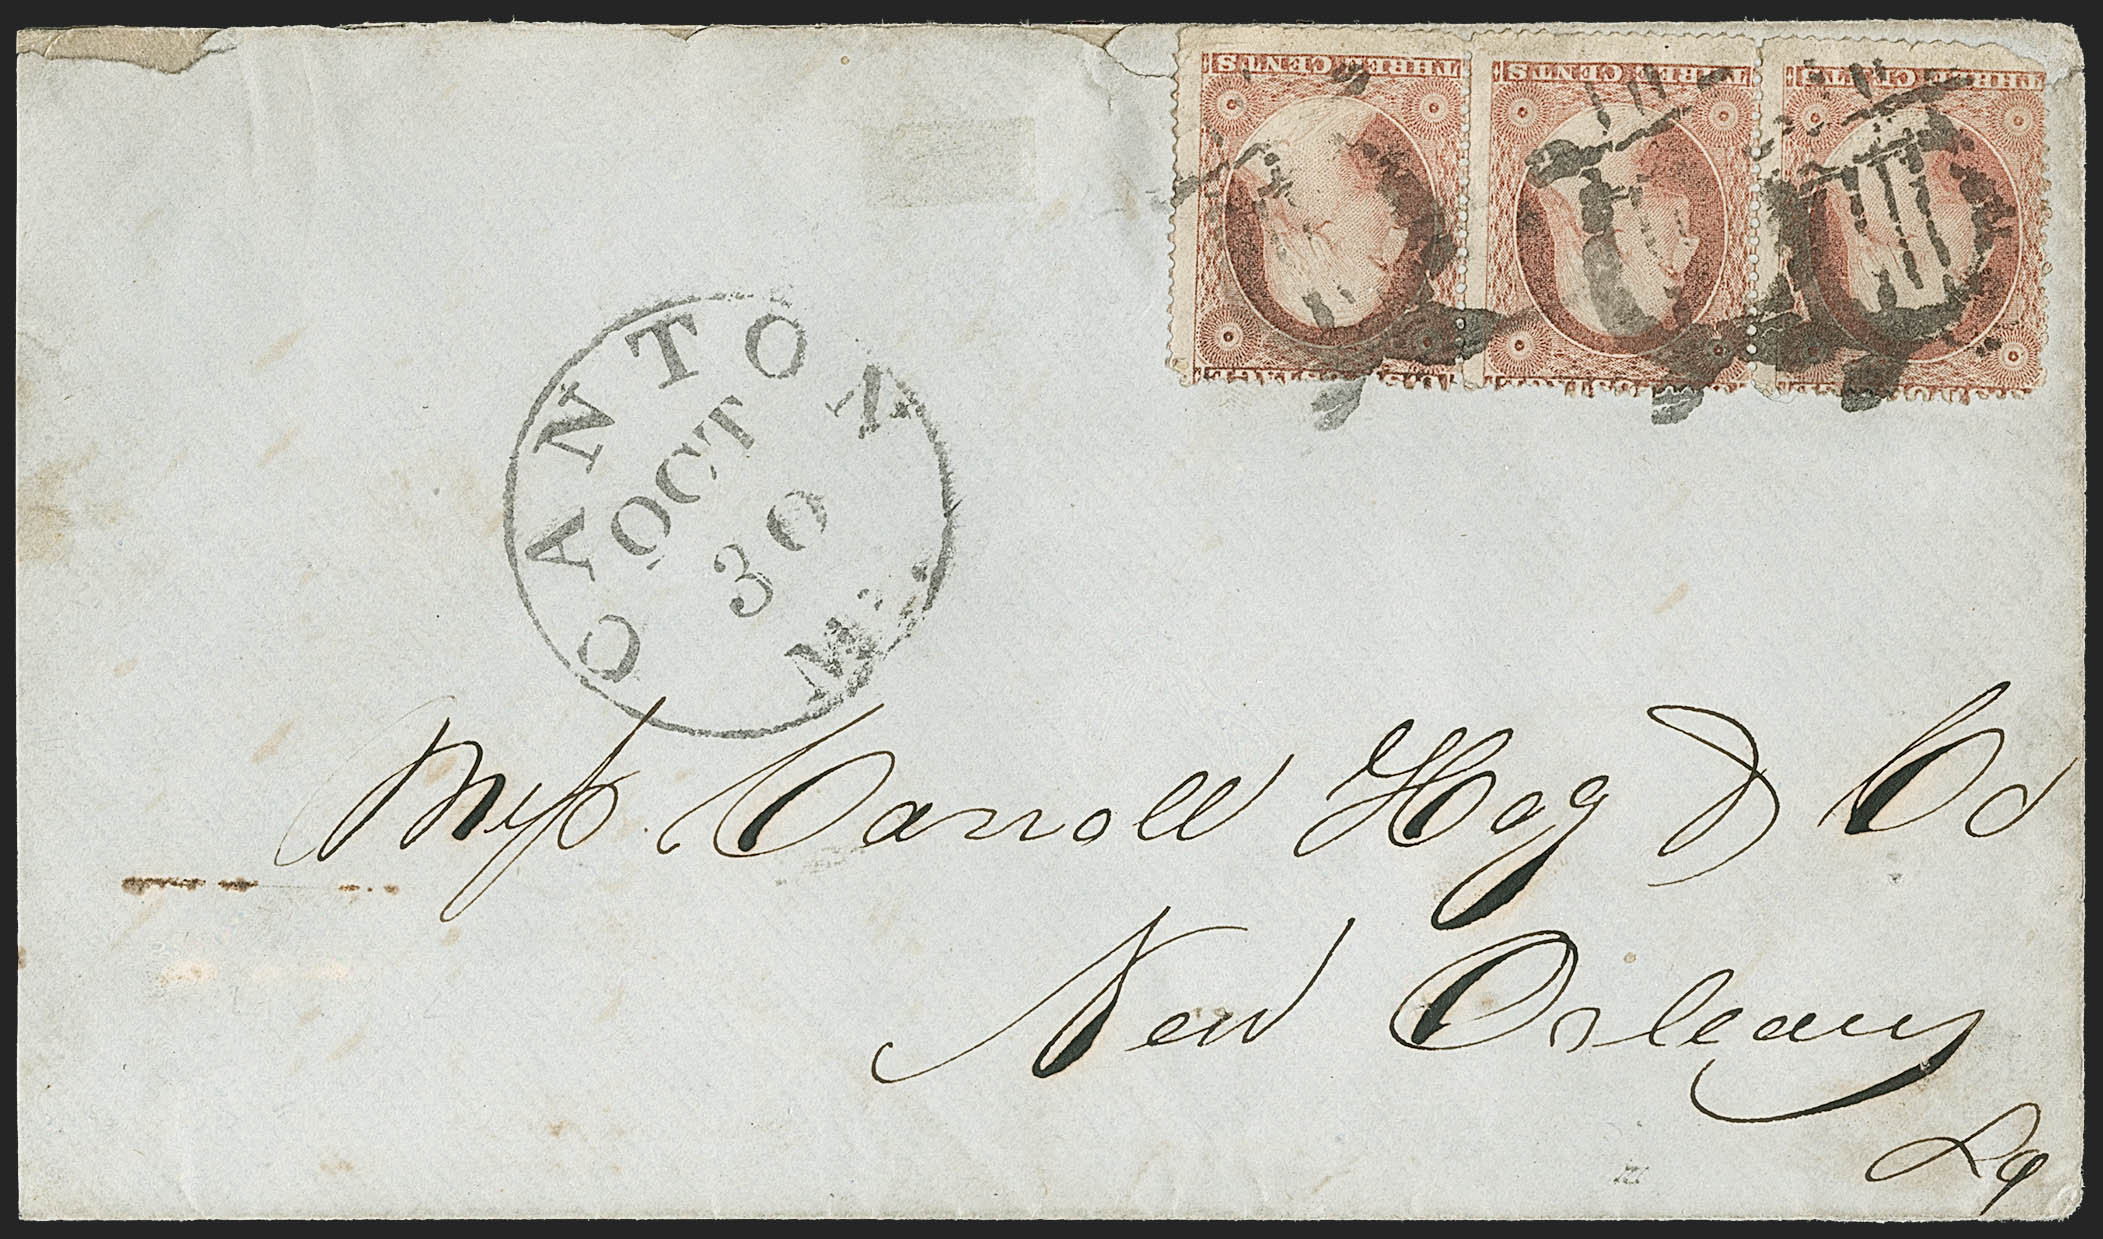 THREE CENTS THREE CENTS THREE CENTS
CANTON
OCT
30
Mi.
Mess. Carroll Hoy & Co
New Orleans
La